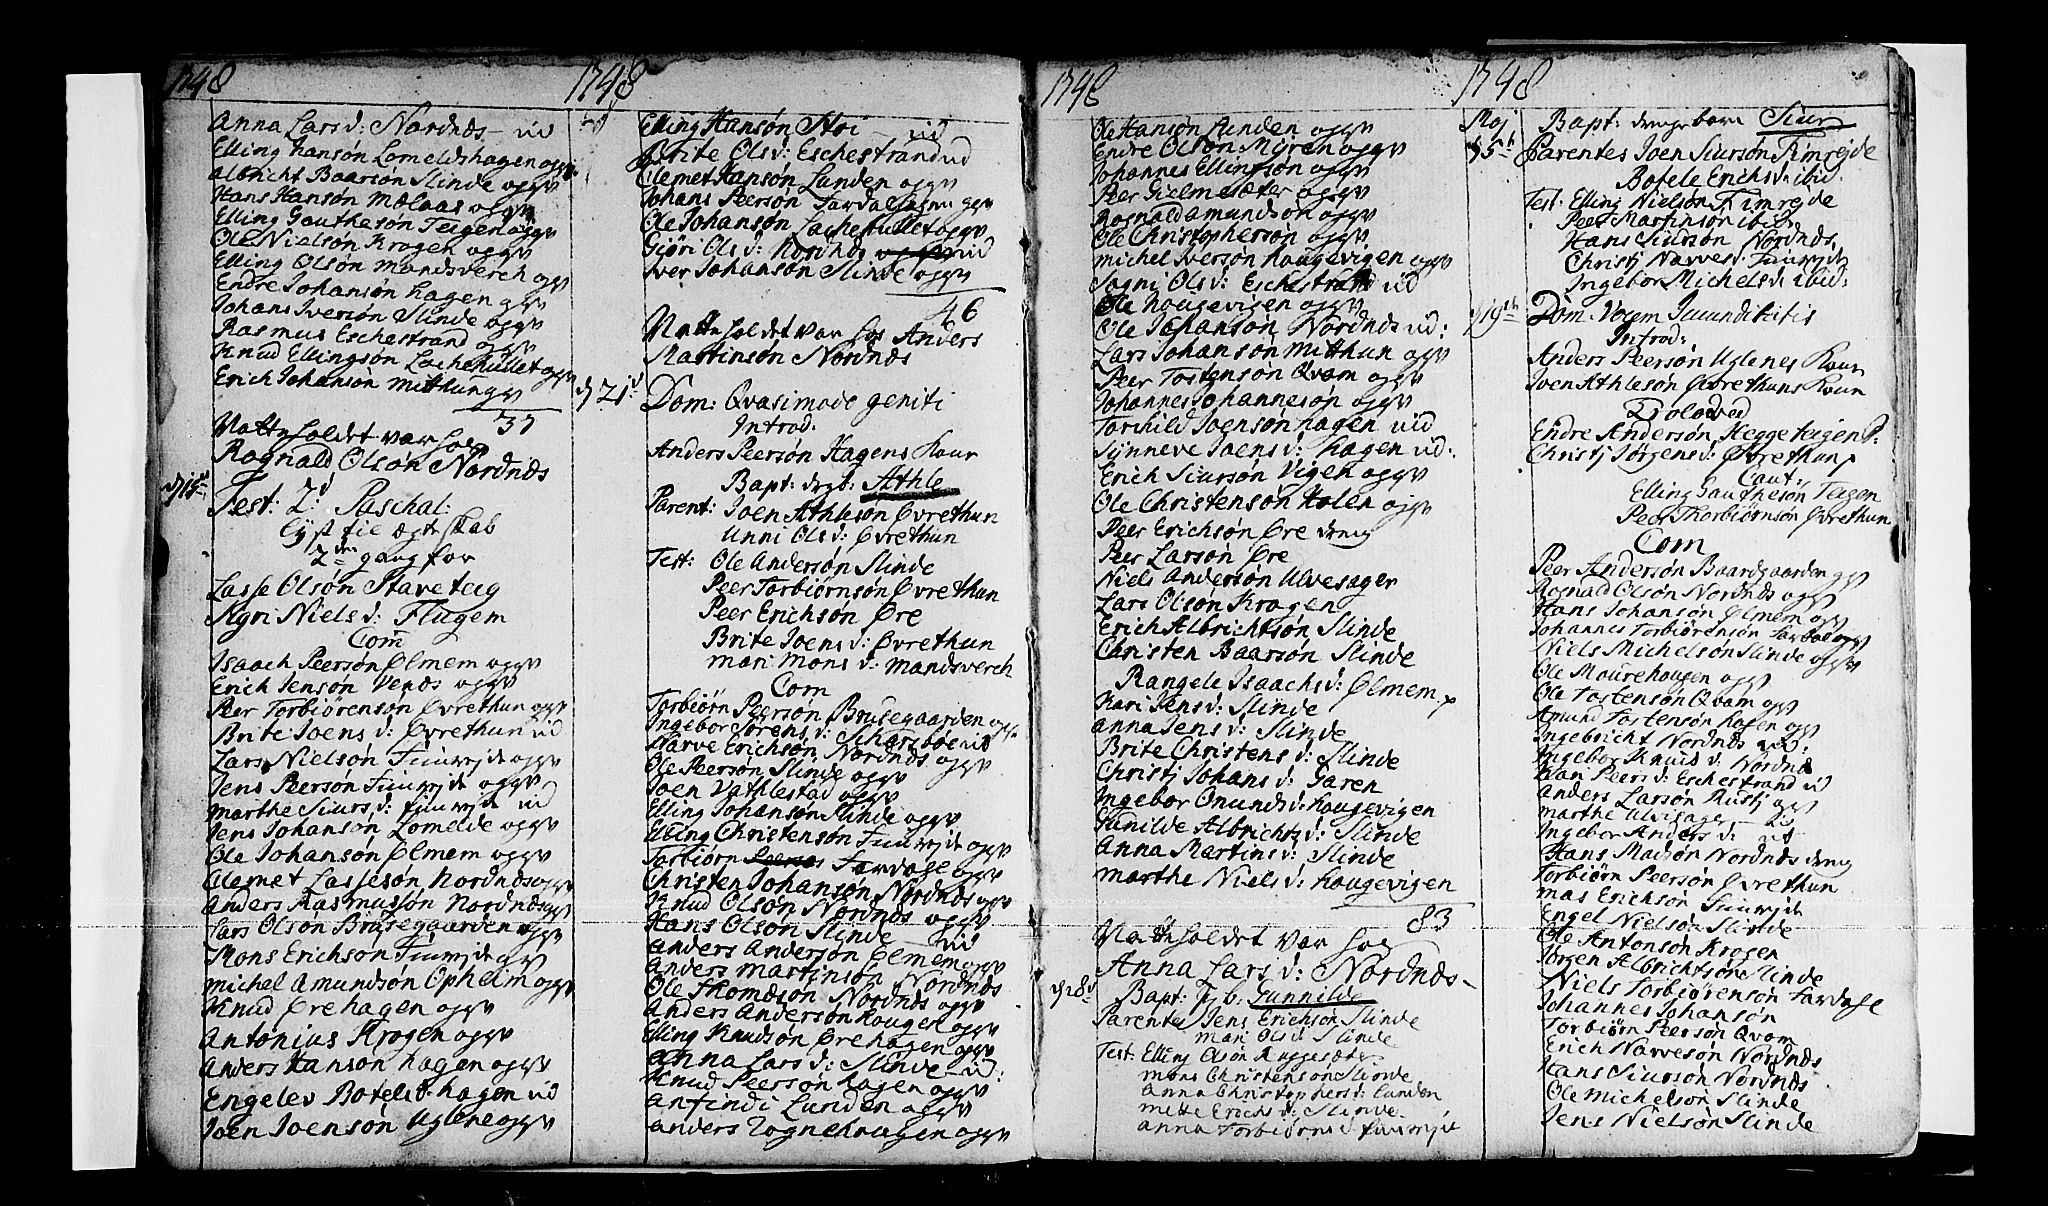 1748
Anna Lars d: Nordnæs - ud
Elling Hansøn Lomeldshagen og gv
Albricht Baarsøn Slinde og gv
Hans Hansøn Mælaas og gv
Elling Gauthesøn Teigen og gv
Ole Nielsøn Krogen og gv
Elling Olsøn Mundsverch og gv
Endre Johansøn Hagen og gv
Johans Iversøn Slinde og gv
Rasmus Eschestrand og gv
Knud Ellingsøn Lachehullet og gv
Erich Johansøn Mithun og gv
37
Natteholdet var hos
Rognald Olsøn Nordnæs
d 15de
Fest: 2d Paschal:
Lyst til ægteskab
2den gang for
Lasse Olsøn Staveteig
Kari Niels d: Flugem
Com
Isaach Peersøn Ølmem og gv
Erich Jensøn Venæs og gv
Peer Torbiørensøn Øvrethun og gv
Brite Joens d: Øvrethun ud
Lars Nielsøn Fimrejte og gv
Jens Peersøn Fimrejte og gv
Marthe Siurs d: Fimrejte ud
Jens Johansøn Lomelde og gv
Ole Johansøn Ølmem og gv
Clemet Lassesøn Nordnæs og gv
Anders Rasmussøn Nordnæs og gv
Lars Olsøn Brusegaarden og gv
Mons Erichsøn Fimrejte og gv
Michel Amundsøn Opheim og gv
Knud Ørehagen og gv
Antonius Krogen og gv
Anders Hansøn Hagen og gv
Engelev Botels d: Hagen ud
Joen Joensøn Uglene og gv
1748
Elling Hansøn Stoi - ud
Brite Ols d: Eschestrand ud
Clemet Hansøn Lunden og gv
Johans Peersøn og gv
Ole Johansøn Lachehullet og gv
Giøri Ols d: Nordnæs ud
Iver Johansøn Slinde og gv
46
Natteholdet var hos Anders
Martinsøn Nordnæs
d 21d
Dom: Qvasimodo geniti
Introd:
Anders Peersøn Hagens Kone
Bapt: drgb: Athle
Parent: Joen Athlesøn Øvrethun
Unni Ols d: Øvrethun
Test: Ole Andersøn Slinde
Peer Torbiørnsøn Øvrethun
Peer Erichsøn Øre
Brite Joens d: Øvrethun
Mari Mons d: Mandsverch
Com
Torbiørn Peersøn Brusegaarden og gv
Ingebor Sørens d: ud
Narve Erichsøn Nordnæs og gv
Ole Peersøn Slinde og gv
Joen Vathlestad og gv
Elling Johansøn Slinde og gv
Elling Christensøn Fimrejte og gv
Torbiørn Fardahl og gv
Christen Johansøn Nordnæs og gv
Knud Olsøn Nordnæs og gv
Hans Olsøn Slinde - ud
Anders Andersøn Ølmem og gv
Anders Martinsøn Nordnæs
Ole Thomæsøn Nordnæs og gv
Anders Andersøn Hougen og gv
Elling Knudsøn Ørehagen og gv
Anna Lars d: Slinde ud:
Knud Peersøn Hagen og gv
Anfind i Lunden og gv
Anders Tognehougen og gv
1748
Ole Hansøn Lunden og gv
Endre Olsøn Myren og gv
Johannes Ellingsøn og gv
Peer Gielmesæter og gv
Rognald Amundsøn og gv
Ole Christophersøn og gv
Michel Iversøn Hougevigen og gv
Sogni Ols d: Eschestrand ud
Ole Hougevigen og gv
Ole Johansøn Nordnæs ud:
Lars Johansøn Mithun og gv
Peer Tostensøn Qvam og gv
Johannes Johannesøn og gv
Torchild Joensøn Hagen ud
Synneve Joens d: Hagen ud:
Erich Siursøn Vigen og gv
Ole Christensøn Holen og gv
Peer Erichsøn Øre dreng
Peer Larsøn Øre
Niels Andersøn Ulvesager
Lars Olsøn Krogen
Erich Albrichtsøn Slinde
Christen Baarsøn Slinde
Rangele Isaachs d: Ølmem. p
Kari Jens d: Slinde
Anna Jens d: Slinde
Brite Christens d: Slinde
Christj Johans d: Garen
Ingebor Onunds d: Hougevigen
Gunilde Albrichts d: Slinde
Anna Martins d: Slinde
Marthe Niels d: Hougevigen
83
Natteholdet var hos
Anna Lars d: Nordnæs -
d 28d
Bapt: Pgb: Gunnilde
Parentes Jens Erichsøn Slinde
Mari Ols d: Slinde
Test: Elling Olsøn Ruggesæter
Mons Christensøn Slinde
Anna Christophers d: Lunden
Mette Erichs d: Slinde
Anna Torbiørns d: Fimrejte
1748
Maj
d 5t
Bapt: drengebarn Siur
Parentes Joen Siursøn Fimrejte
Botele Erichs d: ibid.
Test: Elling Nielsøn Fimrejte
Peer Martinsøn ibid
Hans Siursøn Nordnæs
Christj Narves d: Fimrejte
Ingebor Michels d: ibid:
d 19de
Dom. Vocem Jucunditatis
Introd:
Anders Peersøn Uglenes Kone
Joen Athlesøn Øvrethuns Kone
Trolovved
Endre Andersøn Heggeteigen P:
Christj Jørgens d: Øvrethun p
Caut:
Elling Gauthesøn Teigen
Peer Thorbiørnsøn Øvrethun
Com
Peer Andersøn Baardgaarden og gv
Rognald Olsøn Nordnæs og gv
Hans Johansøn Ølmem og gv
Johannes Torbiørensøn Fardal og gv
Niels Michelsøn Slinde og gv
Ole Mourehougen og gv
Ole Tostensøn Qvam og gv
Amund Tostensøn Hagen og gv
Ingebricht Nordnæs ud:
Ingebor Knuds d: Nordnæs
Kari Peers d: Eschestrand ud
Anders Larsøn Rustj og gv
Marthe Ulvesager - ud
Ingebor Anders d: ud
Hans Madsøn Nordnæs dreng
Torbiørn Peersøn Øvrethun
Mas Erichsøn Fimrejte
Engel Nielsøn Slinde
Ole Antonsøn Krogen
Jørgen Albrichtsøn Slinde
Niels Torbiørensøn Fardahl
Johannes Johansøn
Torbiørn Peersøn Qvam
Erich Narvesøn Nordnæs
Hans Siursøn Nordnæs
Ole Michelsøn Slinde
Jens Nielsøn Slinde